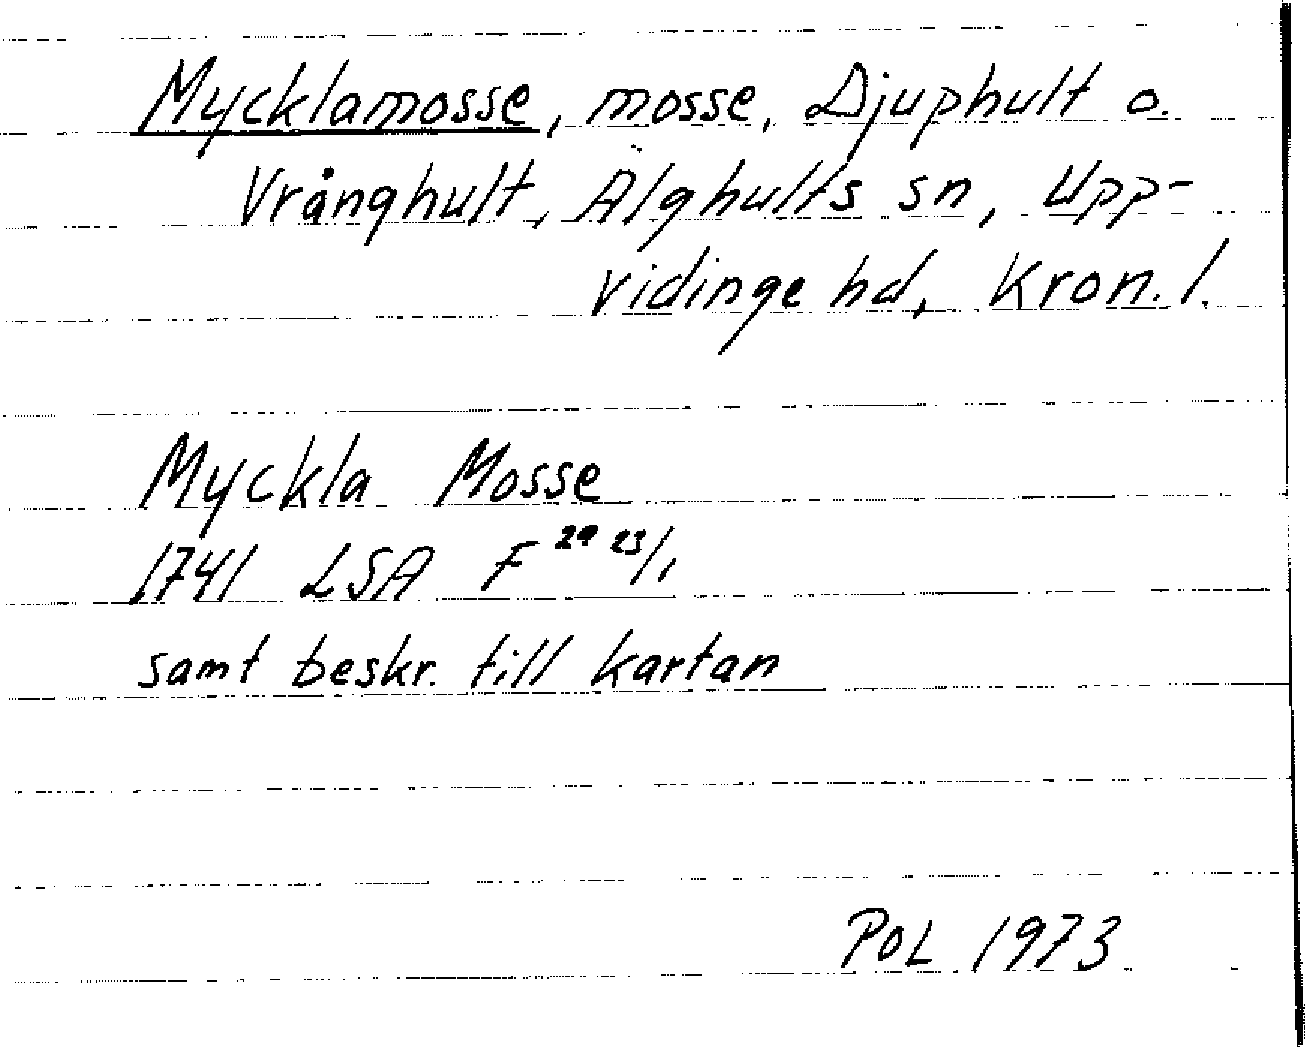 Mycklamosse, mosse, Djuphult o.
Vrånghult, Älghults sn, Upp-
vidinge hd, Kron. l.
Myckla Mosse
1741 LSA F 29 23/1
samt beskr. till kartan
POL 1973